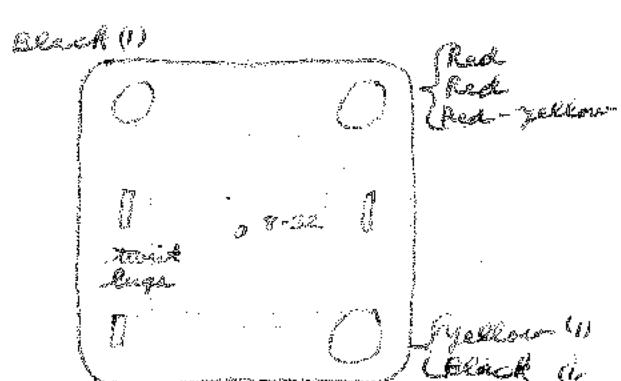 Black (1)
Red
Red
Red-yellow
8-32
twist
lugs
Yellow (1)
Black (1)